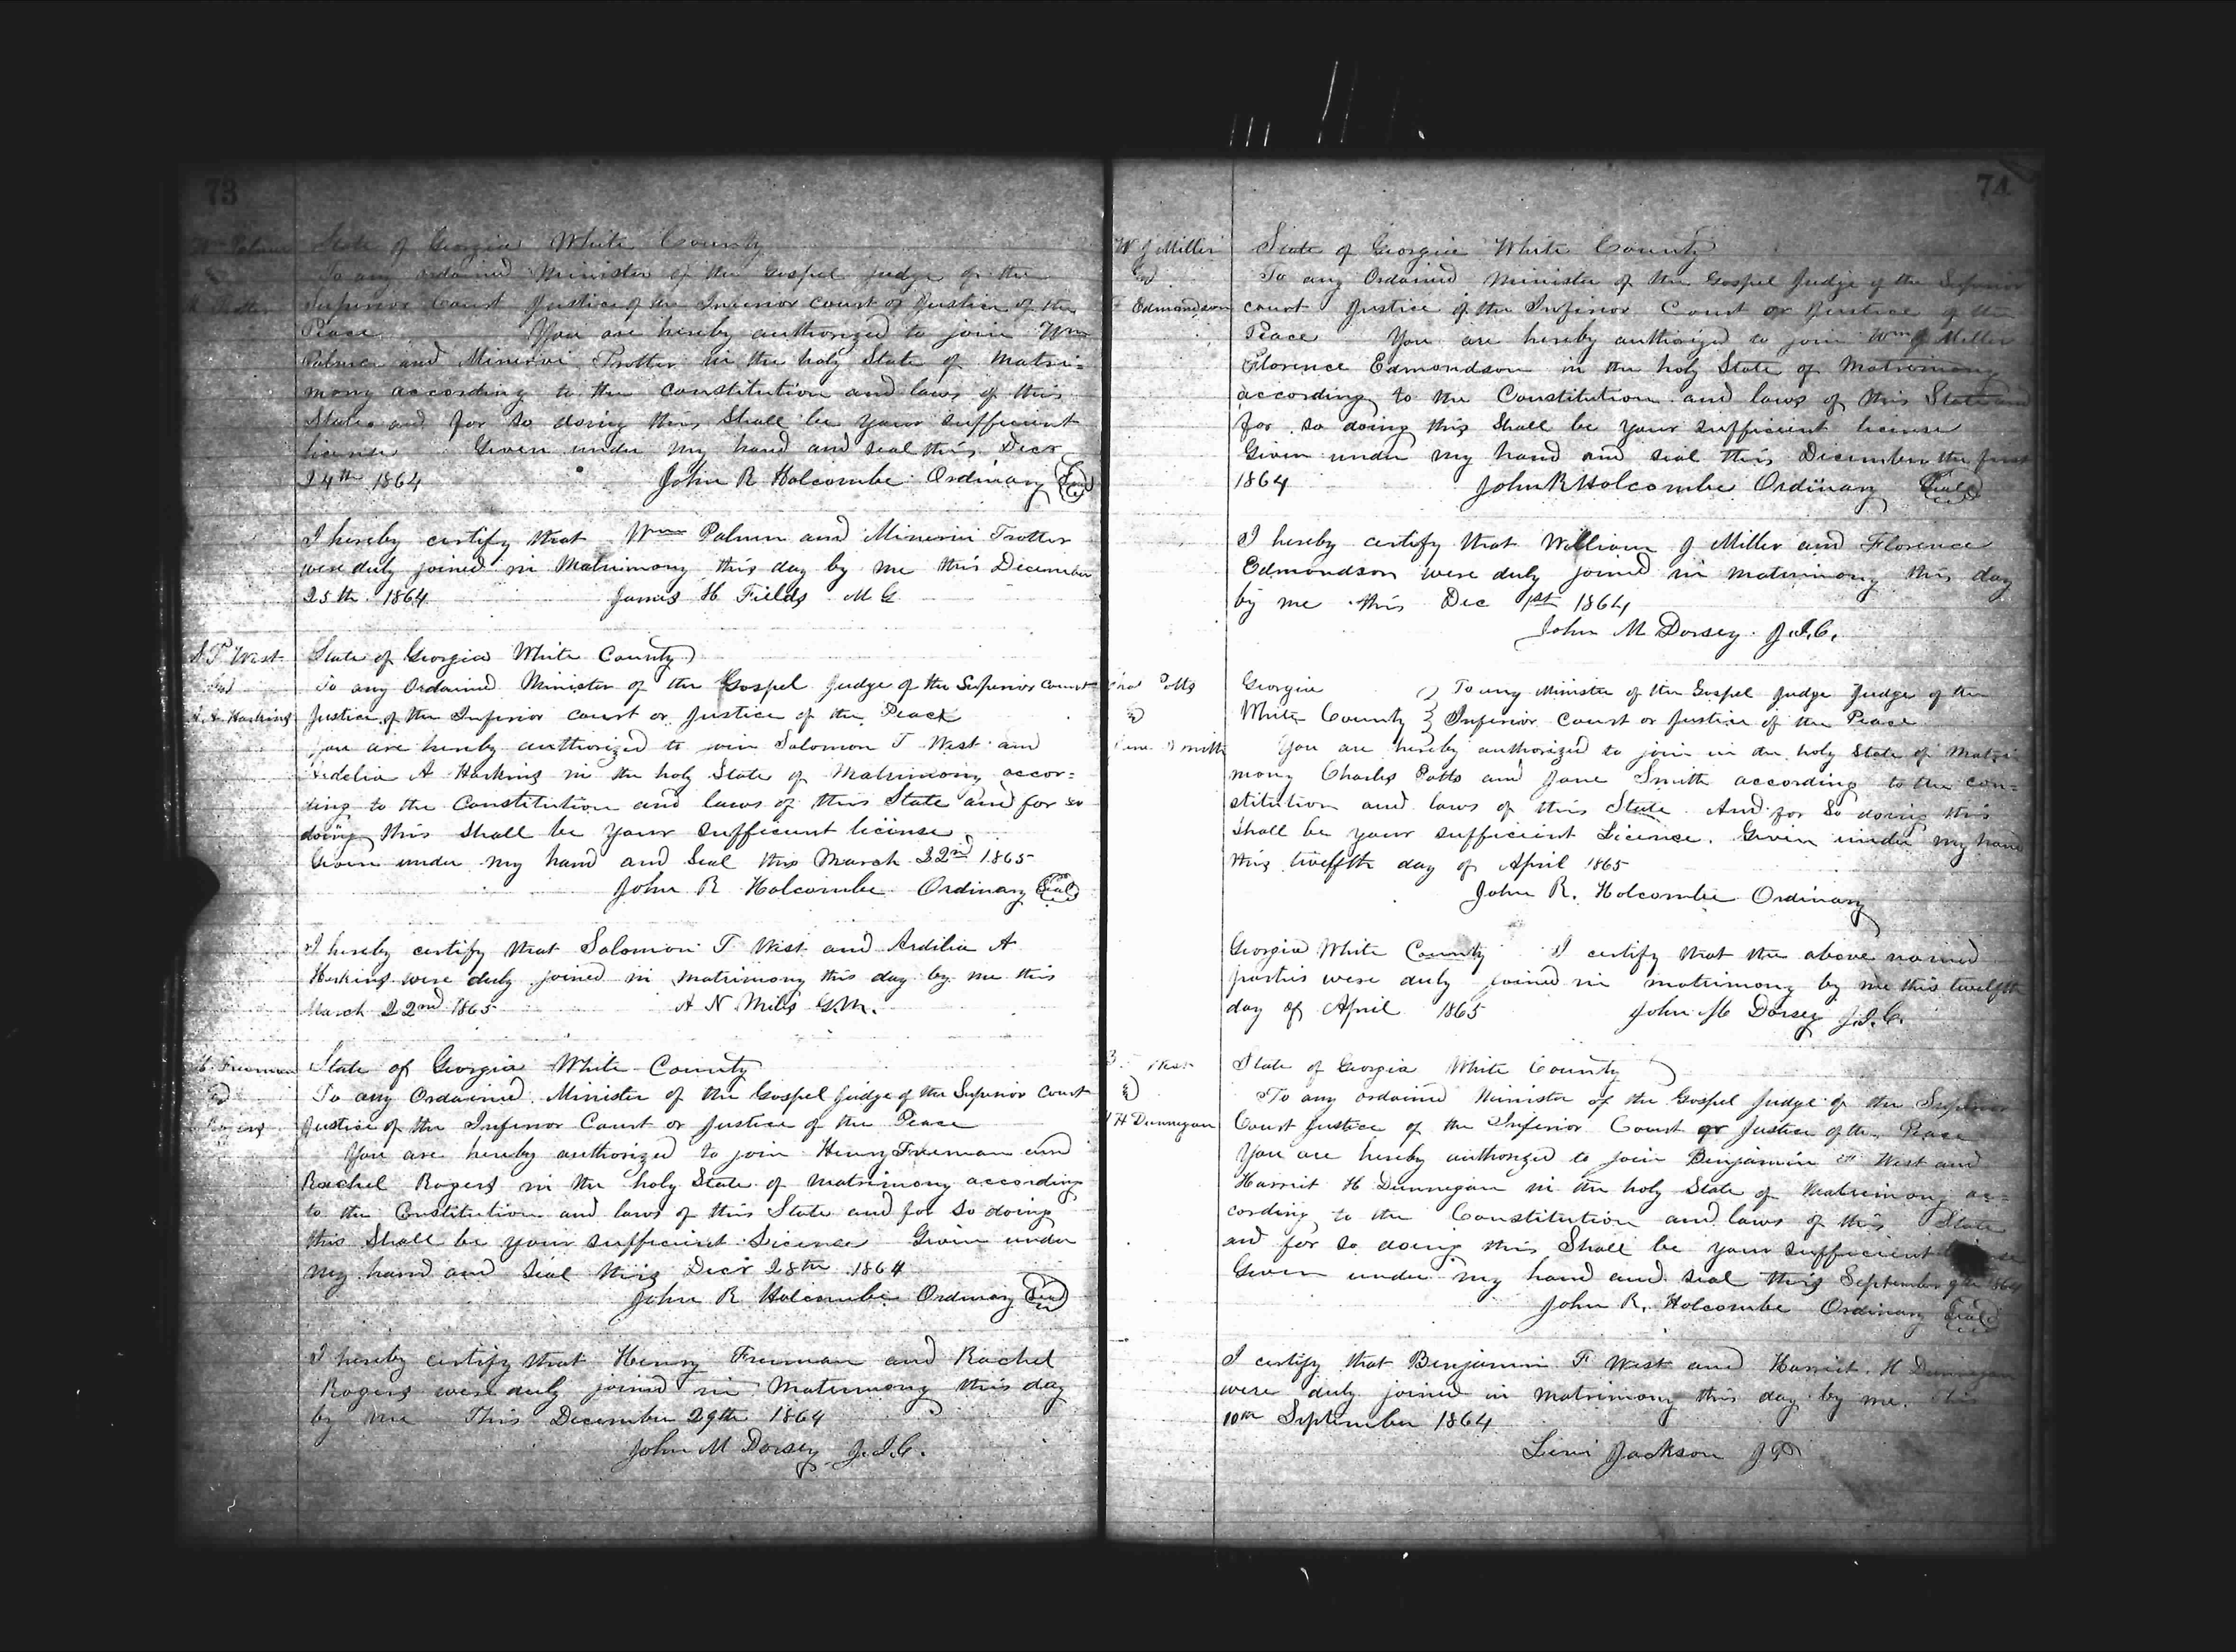 73
Wm Palmer
&
M Trotter
State of Georgia White County
To any ordained Minister of the Gospel Judge of the
Superior Court Justice of the Inferior Court or Justice of the
Peace You are hereby authorized to join Wm
Palmer and Minervi Trotter in the holy State of Matri=
mony according to the Constitution and laws of this
State and for so doing this Shall be your sufficient
license Given under my hand and seal this Decr
24th 1864 John R Holcombe Ordinary Seal
I hereby certify that Wm Palmer and Minervi Trotter
were duly joined in Matrimony this day by me this December
25th 1864 James H Fields M G
S. T. West
and
A. A. Harkins
State of Georgia White County
To any Ordained Minister of the Gospel Judge of the Superior Court
Justice of the Inferior Court or Justice of the Peace
you are hereby authorized to join Solomon T West and
Ardelia A Harkins in the holy State of Matrimony accor=
ding to the Constitution and laws of this State and for so
doing this shall be your sufficient license
Given under my hand and Seal this March 22nd 1865
John R Holcombe Ordinary Seal
I hereby certify that Solomon T West and Ardilia A
Harkins were duly joined in matrimony this day by me this
March 22nd 1865 A N Mills G.M.
H. Freeman
&
Rogers
State of Georgia White County
To any Ordained Minister of the Gospel Judge of the Superior Court
Justice of the Inferior Court or Justice of the Peace
You are hereby authorized to join Henry Freeman and
Rachel Rogers in the holy State of matrimony according
to the Constitution and laws of this State and for so doing
this Shall be your sufficient License Given under
my hand and seal this Decr 28th 1864
John R Holcombe Ordinary Seal
I hereby certify that Henry Freeman and Rachel
Rogers were duly joined in Matrimony this day
by me This December 29th 1864
John M Dorsey J.I.C.
74
W J Miller
and
F Edmondson
State of Georgia White County
To any Ordained Minister of the Gospel Judge of the Superior
court Justice of the Inferior Court or Justice of the
Peace You are hereby authorized to join Wm J Miller
Florence Edmondson in the holy State of Matrimony
according to the Constitution and laws of this State and
for so doing this Shall be your sufficient license
Given under my hand and seal this December the first
1864 John R Holcombe Ordinary Seal
I hereby certify that William J Miller and Florence
Edmondson were duly joined in matrimony this day
by me this Dec 1st 1864
John M Dorsey J.I.C.
Chas Potts
&
Jane Smith
Georgia } To any Minister of the Gospel Judge Judge of the
White County } Inferior Court or Justice of the Peace
You are hereby authorized to join in the holy State of Matri
mony Charles Potts and Jane Smith according to the con=
stitution and laws of this State And for So doing this
Shall be your sufficient License. Given under my hand
this twelfth day of April 1865
John R. Holcombe Ordinary
Georgia White County I certify that the above named
parties were duly joined in matrimony by me this twelfth
day of April 1865 John M Dorsey J.I.C.
B. West
&
H H Dunnegan
State of Georgia White County
To any ordained Minister of the Gospel Judge of the Superior
Court Justice of the Inferior Court or Justice of the Peace
You are hereby authorized to join Benjamin F West and
Harriet H Dunnegan in the holy State of Matrimony ac=
cording to the Constitution and laws of this State
and for so doing this Shall be your sufficient license
Given under my hand and seal this September 9th 1864
John R. Holcombe Ordinary Seal
I certify that Benjamin F West and Harriet H Dunnegan
were duly joined in matrimony this day by me. this
10th September 1864
Levi Jackson J P